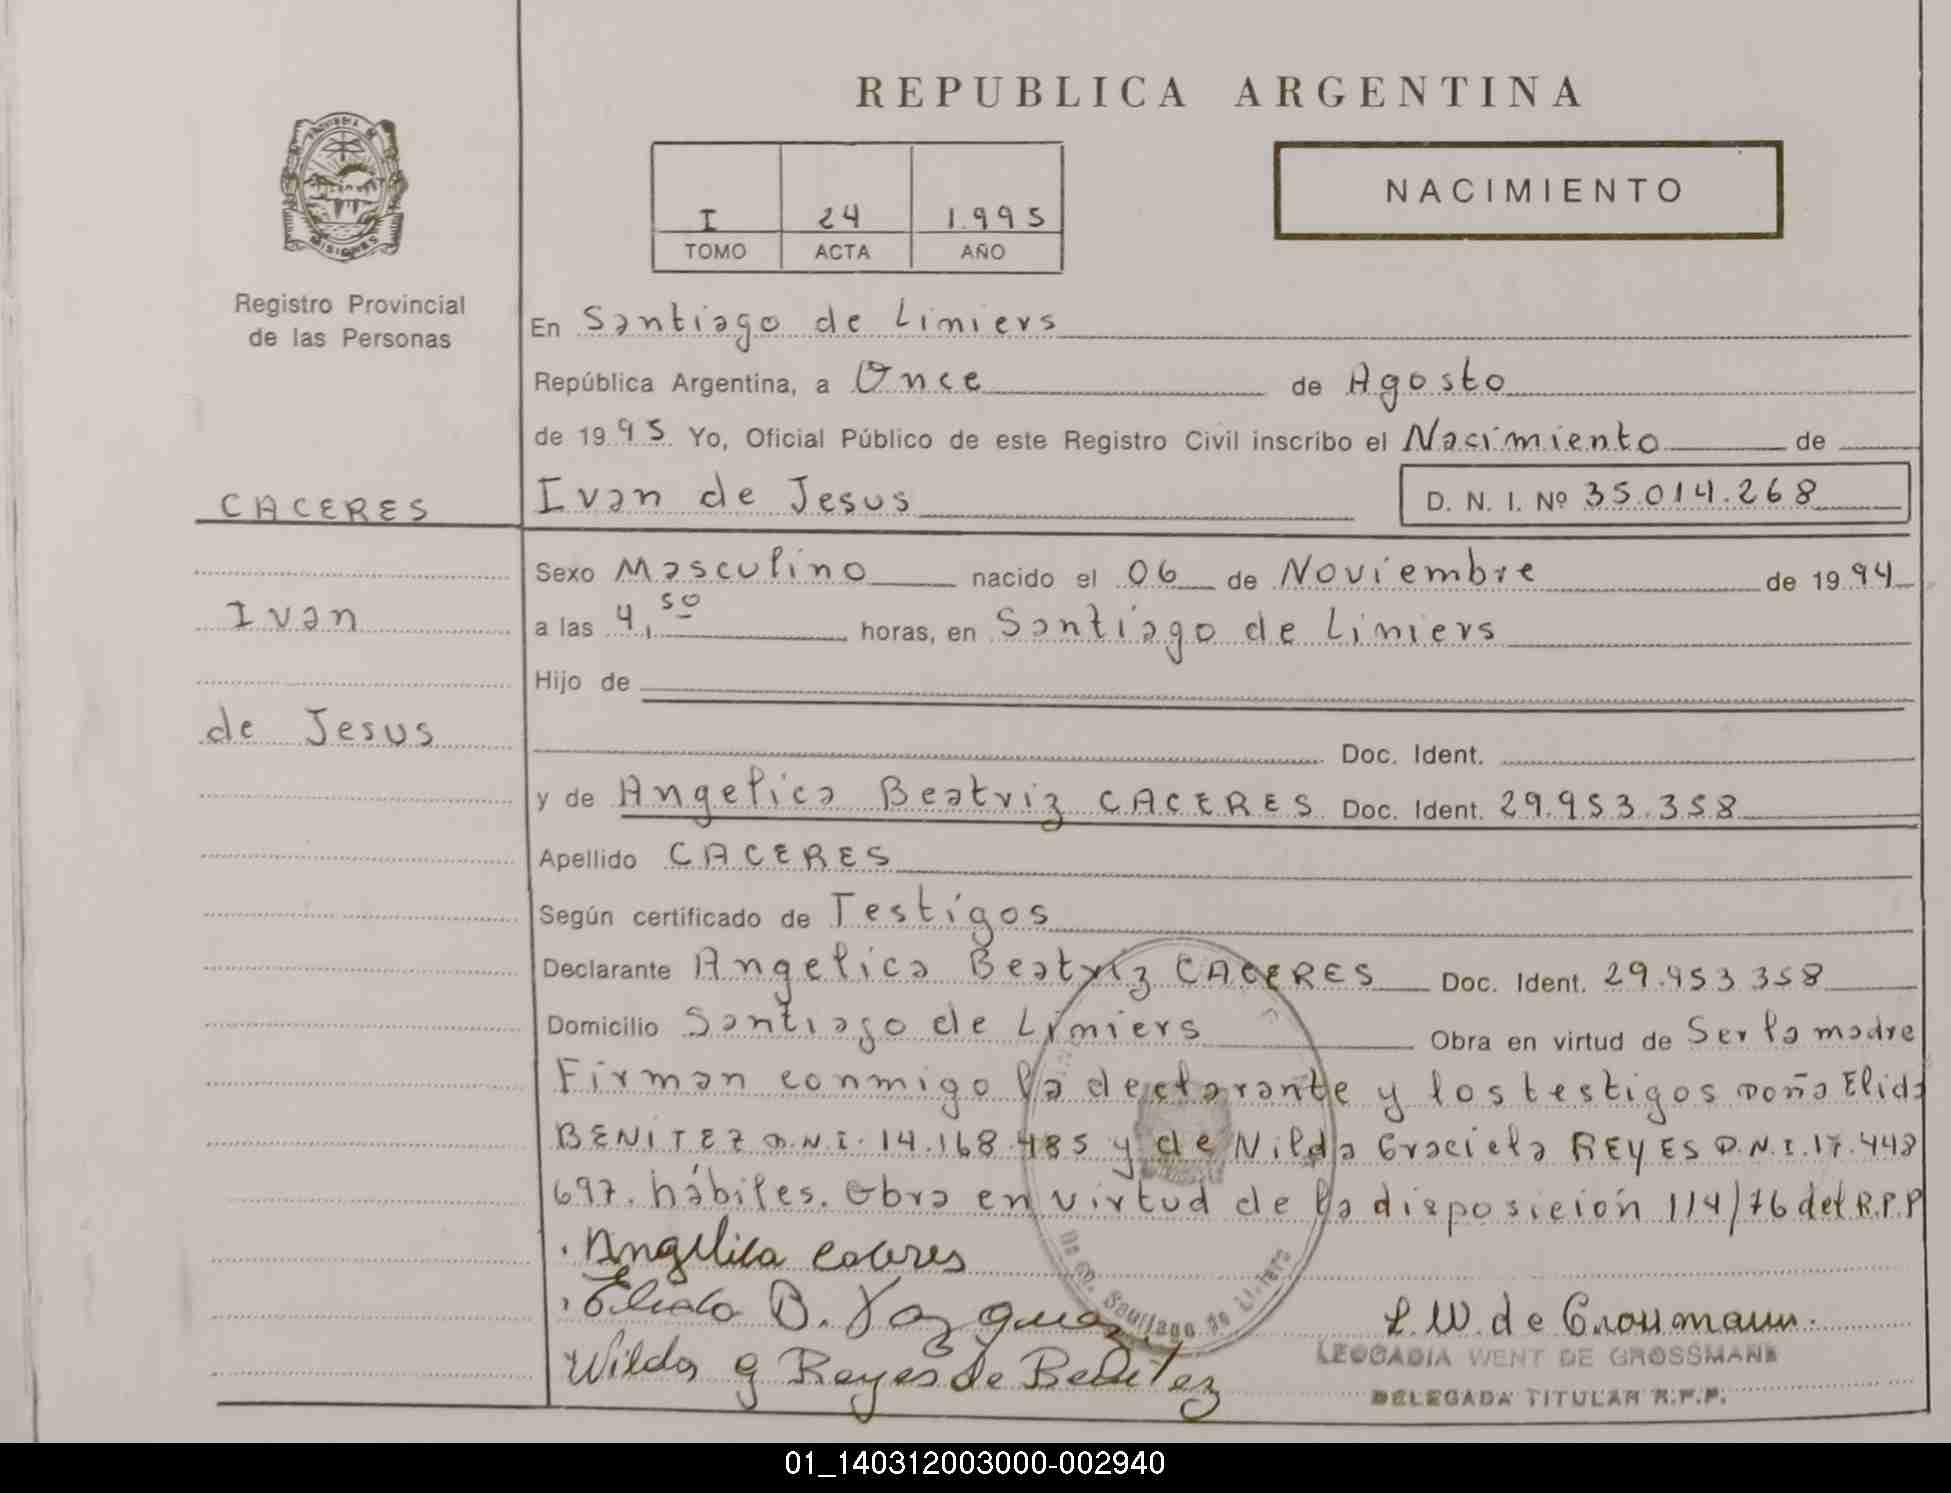 REPUBLICA ARGENTINA
PROVINCIA DE
MISIONES
Registro Provincial
de las Personas
NACIMIENTO
I 24 1.995
TOMO ACTA AÑO
En Santiago de Liniers
República Argentina, a Once de Agosto
de 1995 Yo, Oficial Público de este Registro Civil inscribo el Nacimiento de
CACERES
Ivan de Jesus D. N. I. Nº 35.014.268
Sexo Masculino nacido el 06 de Noviembre de 1994
Ivan
a las 4,50 horas, en Santiago de Liniers
Hijo de
de Jesus
Doc. Ident.
y de Angelica Beatriz CACERES Doc. Ident. 29.953.358
Apellido CACERES
Según certificado de Testigos
Declarante Angelica Beatriz CACERES Doc. Ident. 29.953 358
Domicilio Santiago de Liniers Obra en virtud de Ser la madre
Firman conmigo la declarante y los testigos Doña Elida
BENITEZ D.N.I. 14.168.485 y de Nilda Graciela REYES D.N.I. 17.448
697. hábiles. Obra en virtud de la disposición 114/76 del R.P.P
Angelica Caceres
Elida B. Vazquez
Wilda g Reyes de Benitez
L.W. de Grossmann.
Santiago de Liniers
LEOCADIA WENT DE GROSSMANN
DELEGADA TITULAR R.P.P.
01_140312003000-002940